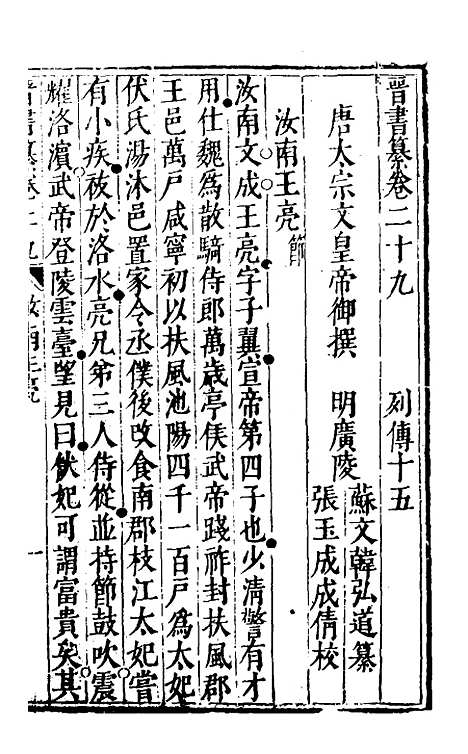 晉書纂卷二十九　列傳十五
唐太宗文皇帝御撰　明廣陵
蘇文韓弘道纂
張玉成成倩校
汝南王亮節
汝南文成王亮字子翼宣帝第四子也少清警有才
用仕魏爲散騎侍郎萬歲亭侯武帝踐祚封扶風郡
王邑萬戶咸寧初以扶風池陽四千一百戶爲太妃
伏氏湯沐邑置家令丞僕後改食南郡枝江太妃嘗
有小疾祓於洛水亮兄弟三人侍從並持節鼓吹震
耀洛濱武帝登陵雲臺望見曰伏妃可謂富貴矣其
晉書纂卷二九　汝南王亮　一